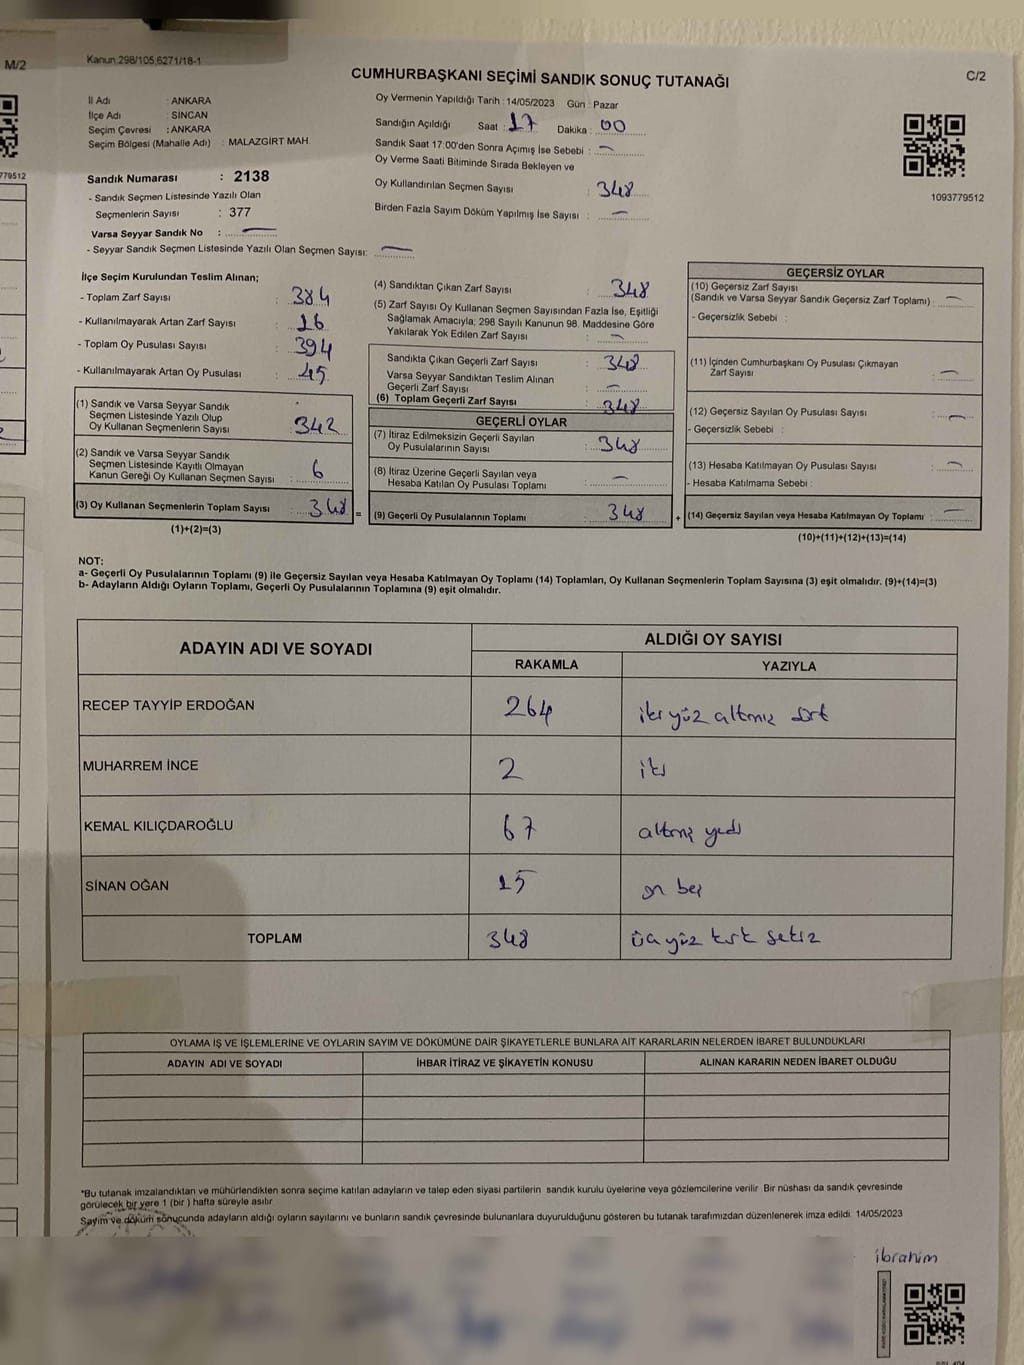 M/2
Kanun 298/105,6271/18-1
C/2
CUMHURBAŞKANI SEÇİMİ SANDIK SONUÇ TUTANAĞI
İl Adı : ANKARA
İlçe Adı : SİNCAN
Seçim Çevresi : ANKARA
Seçim Bölgesi (Mahalle Adı) : MALAZGİRT MAH.
Sandık Numarası : 2138
- Sandık Seçmen Listesinde Yazılı Olan
Seçmenlerin Sayısı : 377
Varsa Seyyar Sandık No : —
- Seyyar Sandık Seçmen Listesinde Yazılı Olan Seçmen Sayısı: —
Oy Vermenin Yapıldığı Tarih : 14/05/2023 Gün : Pazar
Sandığın Açıldığı Saat : 17 Dakika : 00
Sandık Saat 17:00'den Sonra Açımış İse Sebebi : —
Oy Verme Saati Bitiminde Sırada Bekleyen ve
Oy Kullandırılan Seçmen Sayısı : 348
Birden Fazla Sayım Döküm Yapılmış İse Sayısı : —
1093779512
779512
İlçe Seçim Kurulundan Teslim Alınan;
- Toplam Zarf Sayısı : 384
- Kullanılmayarak Artan Zarf Sayısı : 16
- Toplam Oy Pusulası Sayısı : 394
- Kullanılmayarak Artan Oy Pusulası : 45
(1) Sandık ve Varsa Seyyar Sandık
Seçmen Listesinde Yazılı Olup
Oy Kullanan Seçmenlerin Sayısı : 342
(2) Sandık ve Varsa Seyyar Sandık
Seçmen Listesinde Kayıtlı Olmayan
Kanun Gereği Oy Kullanan Seçmen Sayısı : 6
(3) Oy Kullanan Seçmenlerin Toplam Sayısı : 348 =
(1)+(2)=(3)
(4) Sandıktan Çıkan Zarf Sayısı : 348
(5) Zarf Sayısı Oy Kullanan Seçmen Sayısından Fazla İse, Eşitliği
Sağlamak Amacıyla; 298 Sayılı Kanunun 98. Maddesine Göre
Yakılarak Yok Edilen Zarf Sayısı : —
Sandıkta Çıkan Geçerli Zarf Sayısı : 348
Varsa Seyyar Sandıktan Teslim Alınan
Geçerli Zarf Sayısı : —
(6) Toplam Geçerli Zarf Sayısı : 348
GEÇERLİ OYLAR
(7) İtiraz Edilmeksizin Geçerli Sayılan
Oy Pusulalarının Sayısı : 348
(8) İtiraz Üzerine Geçerli Sayılan veya
Hesaba Katılan Oy Pusulası Toplamı : —
(9) Geçerli Oy Pusulalarının Toplamı : 348 +
GEÇERSİZ OYLAR
(10) Geçersiz Zarf Sayısı
(Sandık ve Varsa Seyyar Sandık Geçersiz Zarf Toplamı) : —
- Geçersizlik Sebebi :
(11) İçinden Cumhurbaşkanı Oy Pusulası Çıkmayan
Zarf Sayısı : —
(12) Geçersiz Sayılan Oy Pusulası Sayısı : —
- Geçersizlik Sebebi :
(13) Hesaba Katılmayan Oy Pusulası Sayısı : —
- Hesaba Katılmama Sebebi :
(14) Geçersiz Sayılan veya Hesaba Katılmayan Oy Toplamı : —
(10)+(11)+(12)+(13)=(14)
NOT:
a- Geçerli Oy Pusulalarının Toplamı (9) ile Geçersiz Sayılan veya Hesaba Katılmayan Oy Toplamı (14) Toplamları, Oy Kullanan Seçmenlerin Toplam Sayısına (3) eşit olmalıdır. (9)+(14)=(3)
b- Adayların Aldığı Oyların Toplamı, Geçerli Oy Pusulalarının Toplamına (9) eşit olmalıdır.
ADAYIN ADI VE SOYADI
ALDIĞI OY SAYISI
RAKAMLA YAZIYLA
RECEP TAYYİP ERDOĞAN 264 iki yüz altmış dört
MUHARREM İNCE 2 iki
KEMAL KILIÇDAROĞLU 67 altmış yedi
SİNAN OĞAN 15 on beş
TOPLAM 348 üç yüz kırk sekiz
OYLAMA İŞ VE İŞLEMLERİNE VE OYLARIN SAYIM VE DÖKÜMÜNE DAİR ŞİKAYETLERLE BUNLARA AİT KARARLARIN NELERDEN İBARET BULUNDUKLARI
ADAYIN ADI VE SOYADI İHBAR İTİRAZ VE ŞİKAYETİN KONUSU ALINAN KARARIN NEDEN İBARET OLDUĞU
*Bu tutanak imzalandıktan ve mühürlendikten sonra seçime katılan adayların ve talep eden siyasi partilerin sandık kurulu üyelerine veya gözlemcilerine verilir. Bir nüshası da sandık çevresinde
görülecek bir yere 1 (bir) hafta süreyle asılır.
Sayım ve döküm sonucunda adayların aldığı oyların sayılarını ve bunların sandık çevresinde bulunanlara duyurulduğunu gösteren bu tutanak tarafımızdan düzenlenerek imza edildi. 14/05/2023
ibrahim